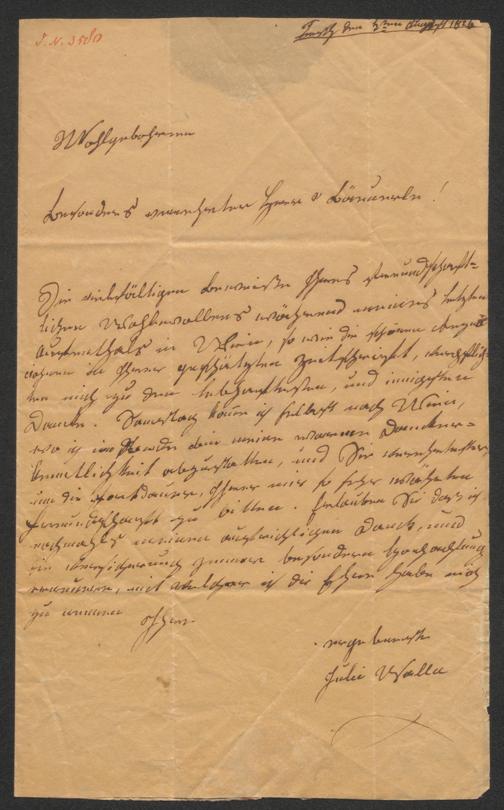 I. N. 3580
den 5ten August 1826
Wohlgebohrener
besonders verehrter Herr v Bäuerle!
Die vielfältigen Beweise Ihres freundschaft-
lichen Wohlwollens während meines letzten
Aufenthalts in Wien, so wie die schöne
in Ihrer geschätzten Zeitschrift, verpflich-
ten mich zu dem lebhaftesten, und innigsten
Dancke. Samstag komm ich selbst nach Wien,
wo ich im Stande bin meinen warmen Dancker-
kenntlichkeit abzustatten, und Sie verehrtester
um die Fortdauer, Ihrer mir so sehr
Freundschaft zu bitten. Erlauben Sie daß ich
nochmahls meinen aufrichtigen Danck, und
die Versicherung meiner besondern Hochachtung
mit welcher ich die Ehre habe mich
zu nennen
Ihre
ergebenste
Julie Walla